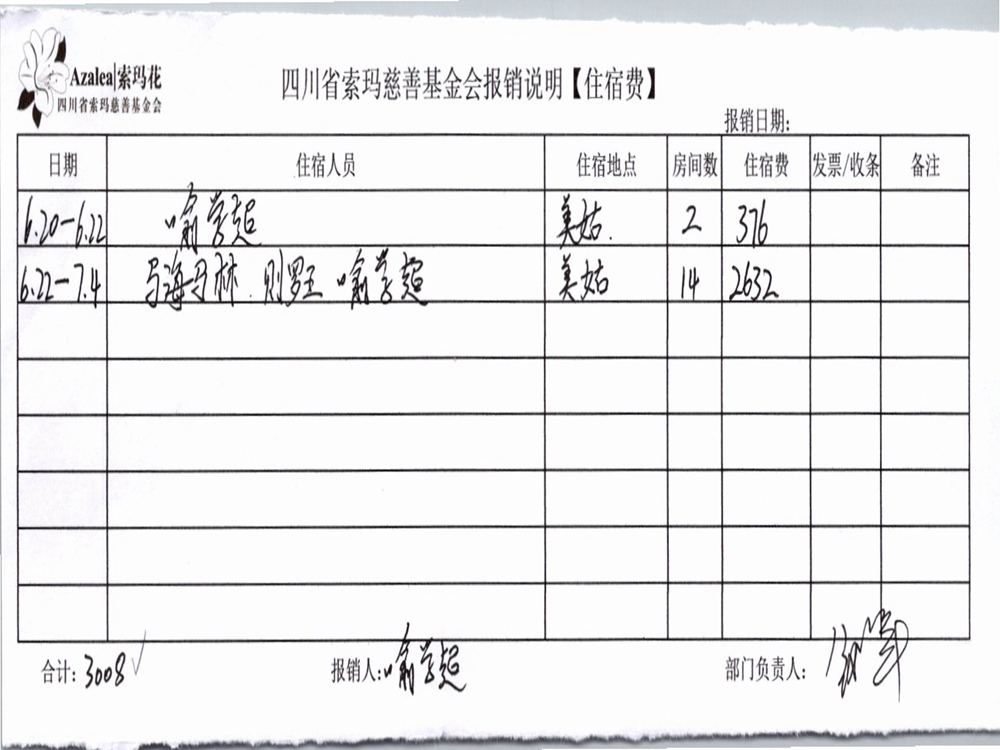 Azalea|索玛花
四川省索玛慈善基金会
四川省索玛慈善基金会报销说明【住宿费】
报销日期:
日期 住宿人员 住宿地点 房间数 住宿费 发票/收条 备注
6.20-6.22 喻学超 美姑. 2 376
6.22-7.4 马海马林. 则罗王 喻学超 美姑 14 2632
合计: 3008 √ 报销人: 喻学超 部门负责人: